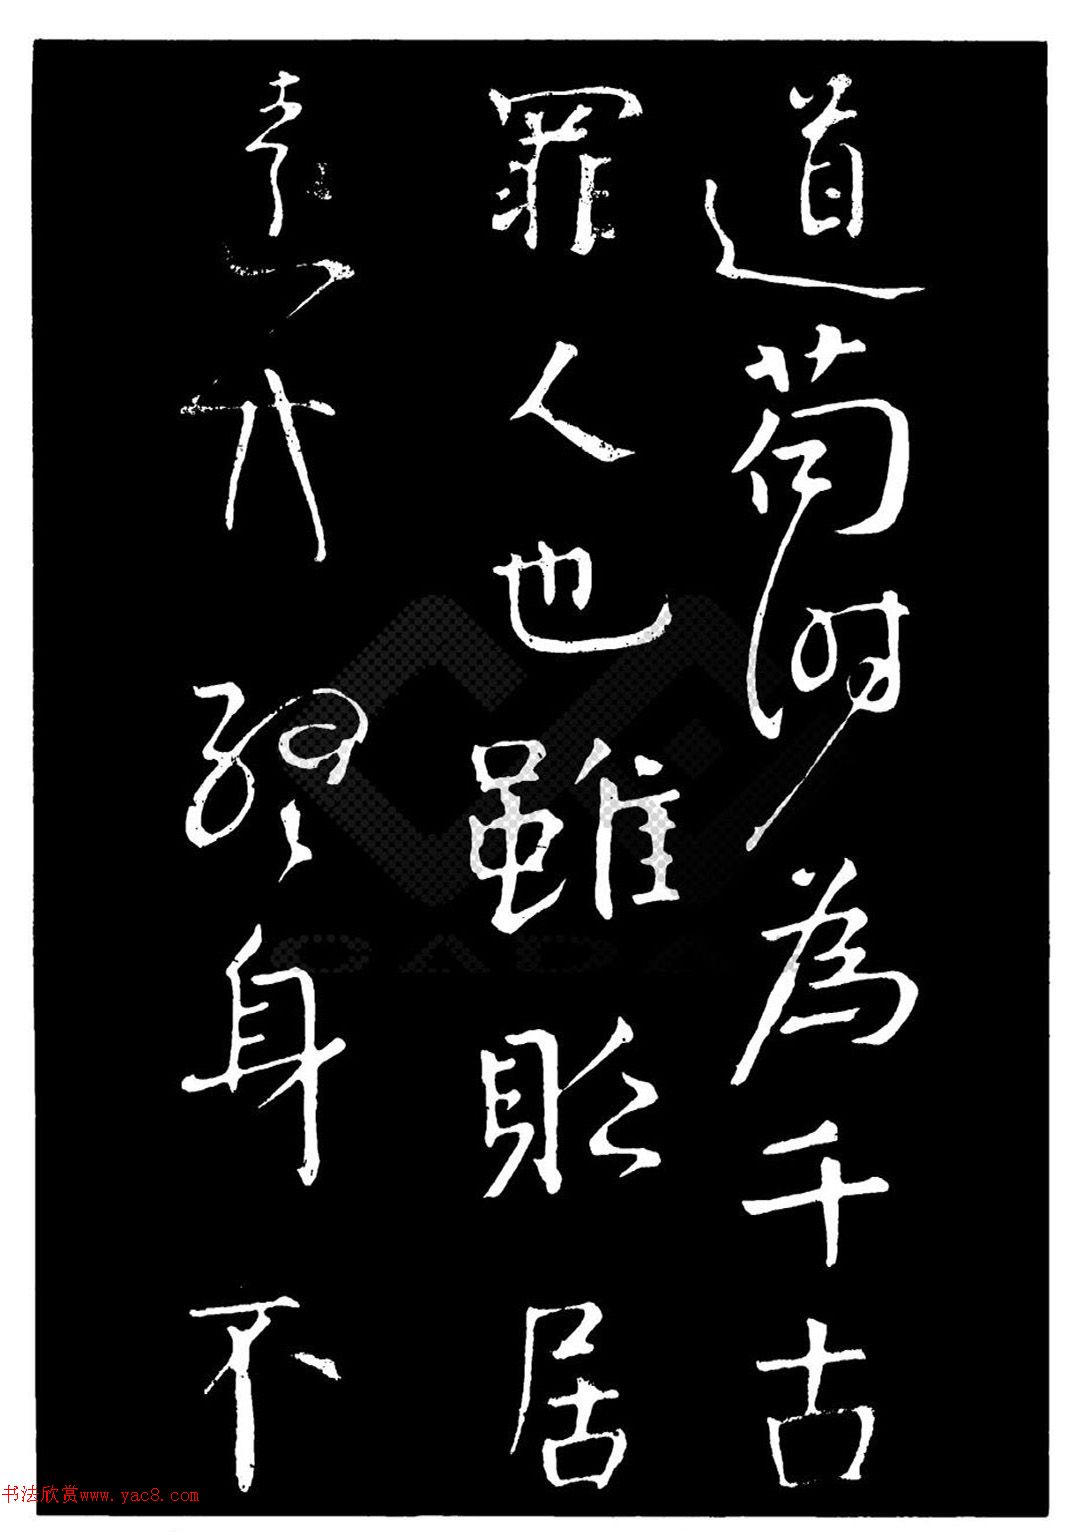 道苟時為千古
罪人也雖貶居
遠方終身不
书法欣赏www.yac8.com